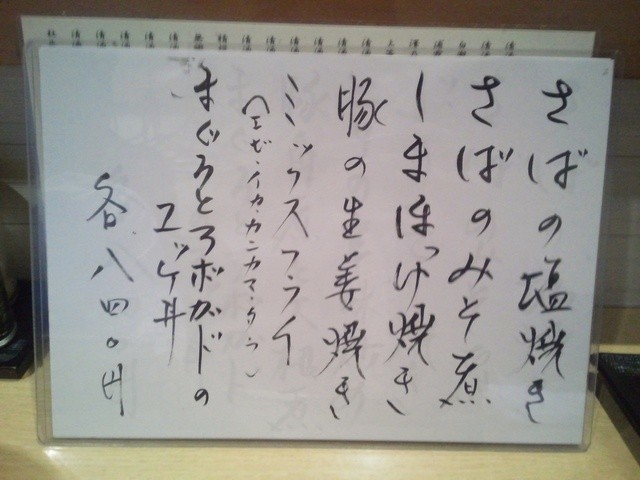 さばの塩焼き
さばのみそ煮
しまほっけ焼き
豚の生姜焼き
ミックスフライ
(エビ・イカ・カニカマ・タラ)
まぐろとアボガドの
ユッケ丼
各八四〇円